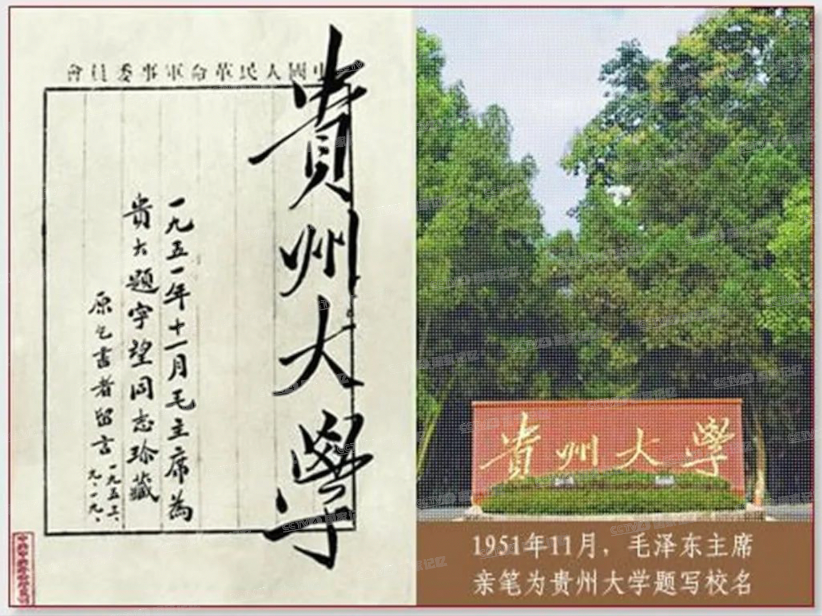 中國人民革命軍事委員會
貴州大學
一九五一年十一月毛主席为
贵大题字望同志珍藏
原乞書者留言
一九五三、
九、一九、
貴州大學
1951年11月，毛泽东主席
亲笔为贵州大学题写校名